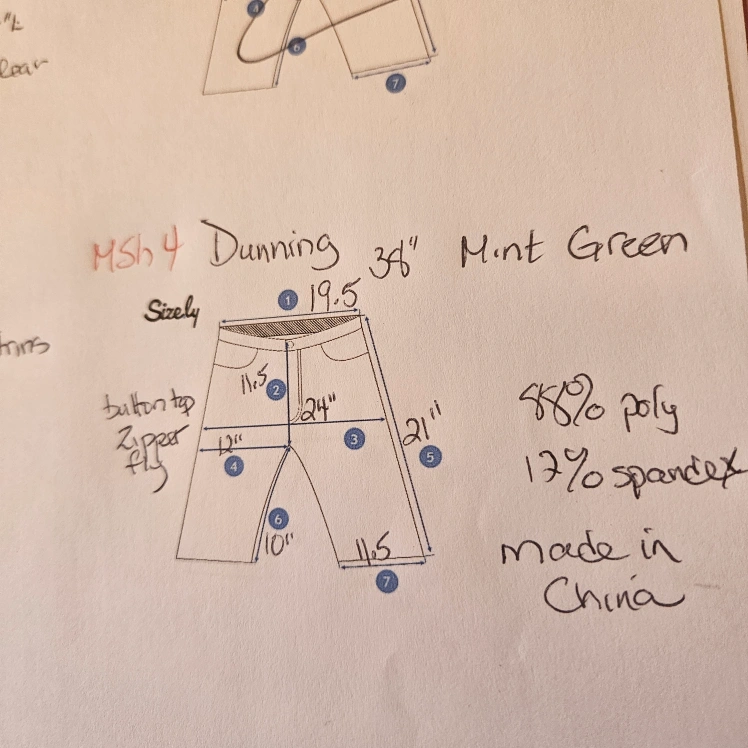 "L
lear
4
6
7
MSh4 Dunning 38" Mint Green
Sizely
1 19.5
11.5
2
button top
Zipper
fly
24"
3
12"
4
21"
5
6
10"
11.5
7
88% poly
12% spandex
made in
China